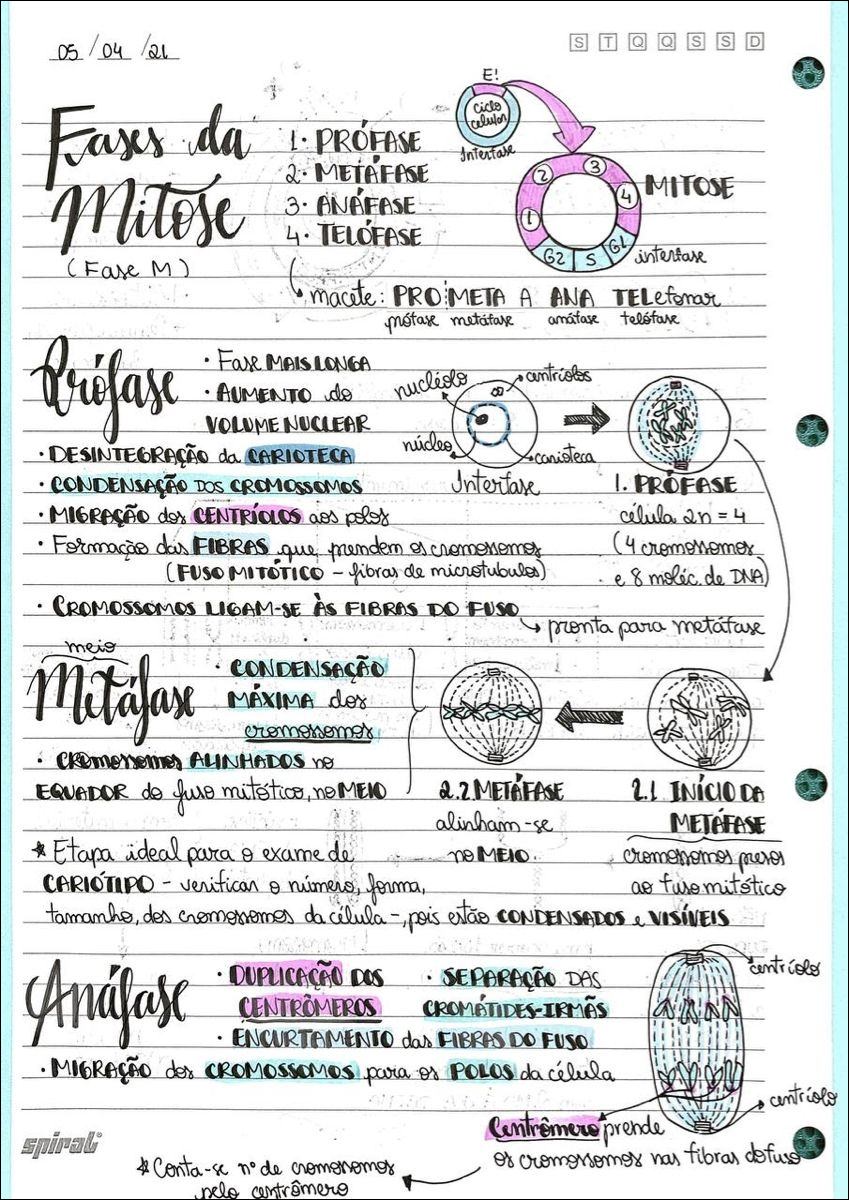 05/04/21
S T Q Q S S D
Fases da
Mitose
(Fase M)
1. PRÓFASE
2. METÁFASE
3. ANÁFASE
4. TELÓFASE
E!
ciclo
celular
Interfase
1 2 3 4
MITOSE
G2 S G1
interfase
macete: PRO META A ANA TELefonar
prófase metáfase anáfase telófase
Prófase
· Fase MAIS LONGA
· AUMENTO do
VOLUME NUCLEAR
· DESINTEGRAÇÃO da CARIOTECA
· CONDENSAÇÃO DOS CROMOSSOMOS
· MIGRAÇÃO dos CENTRÍOLOS aos polos
· Formação das FIBRAS que prendem os cromossomos
(FUSO MITÓTICO - fibras de microtubulos)
· CROMOSSOMOS LIGAM-SE ÀS FIBRAS DO FUSO
pronta para metáfase
nucléolo
centríolos
núcleo
carioteca
Interfase
1. PRÓFASE
célula 2n = 4
(4 cromossomos
e 8 moléc. de DNA)
meio
Metáfase
· CONDENSAÇÃO
MÁXIMA dos
cromossomos
· Cromossomos ALINHADOS no
EQUADOR do fuso mitótico, no MEIO
2.2 METÁFASE
alinham-se
no MEIO.
2.1 INÍCIO DA
METÁFASE
cromossomos presos
ao fuso mitótico
* Etapa ideal para o exame de
CARIÓTIPO - verificar o número, forma,
tamanho, dos cromossomos da célula -, pois estão CONDENSADOS e VISÍVEIS
Anáfase
· DUPLICAÇÃO DOS
CENTRÔMEROS
· SEPARAÇÃO DAS
CROMÁTIDES-IRMÃS
· ENCURTAMENTO das FIBRAS DO FUSO
· MIGRAÇÃO dos CROMOSSOMOS para os POLOS da célula
centríolo
centríolo
Centrômero prende
os cromossomos nas fibras do fuso
* Conta-se nº de cromossomos
pelo centrômero
spiral®